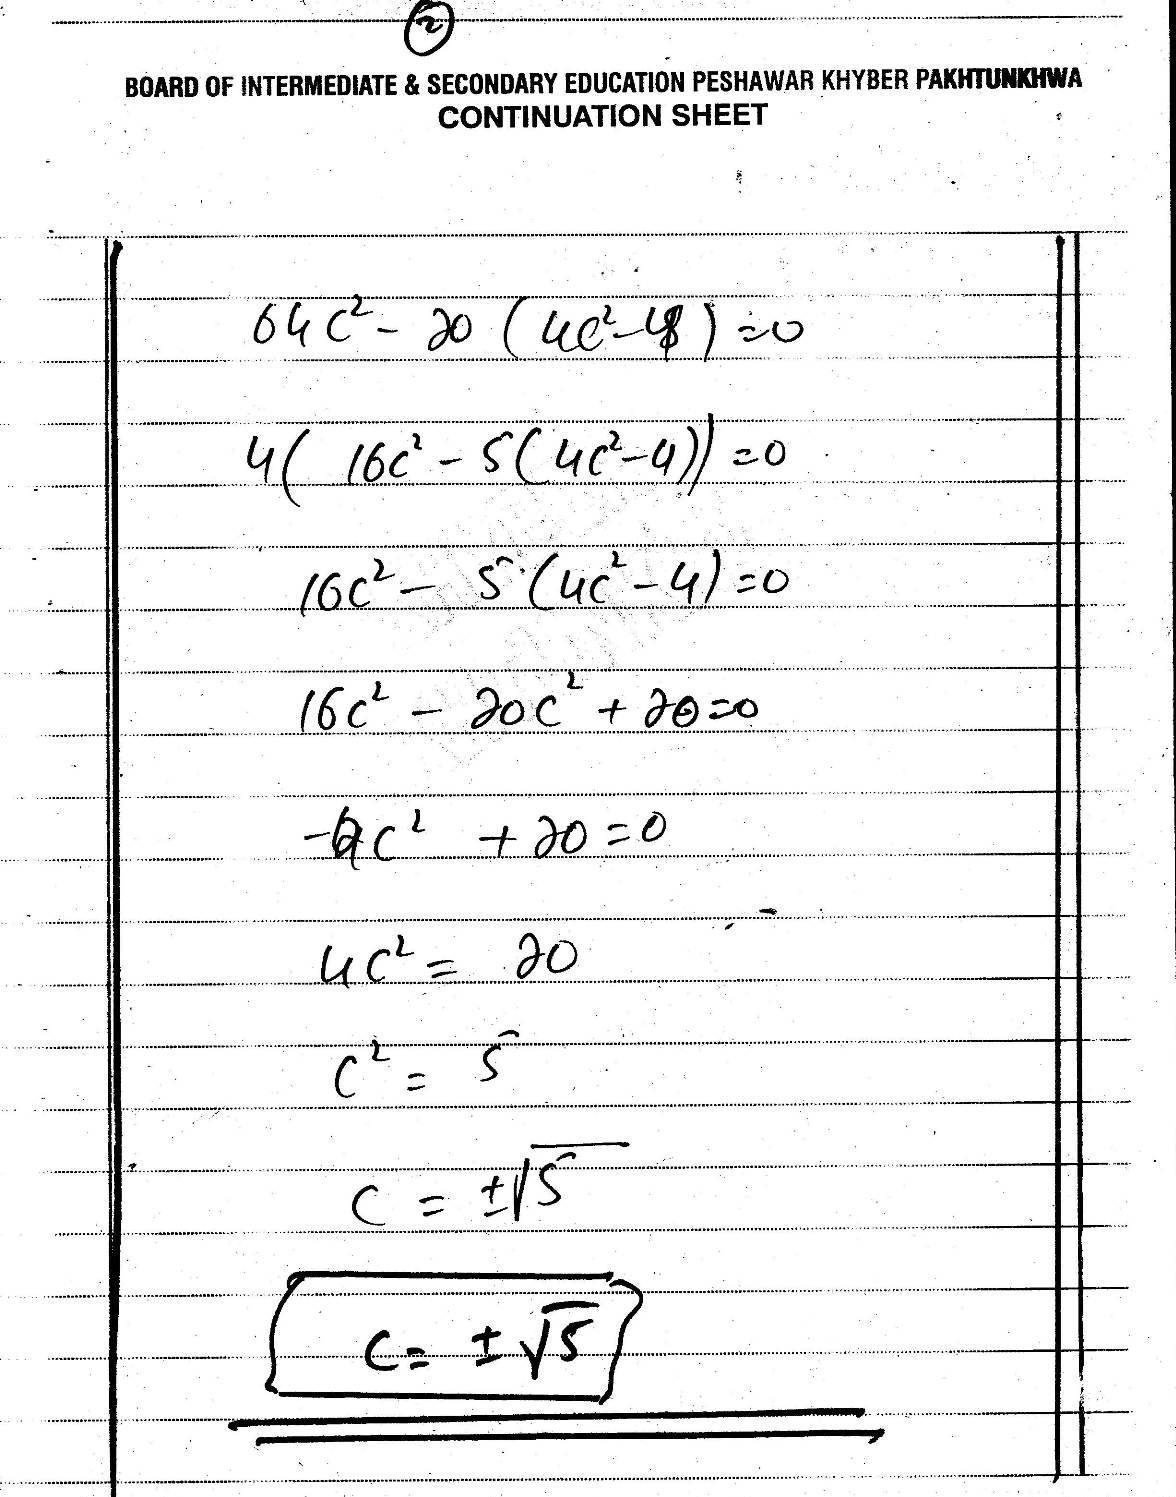 2
BOARD OF INTERMEDIATE & SECONDARY EDUCATION PESHAWAR KHYBER PAKHTUNKHWA
CONTINUATION SHEET
64c² - 20 (4c²-4) = 0
4( 16c² - 5(4c²-4)) = 0
16c² - 5 (4c² - 4) = 0
16c² - 20c² + 20 = 0
-4c² + 20 = 0
4c² = 20
c² = 5
c = ±√5
c = ± √5